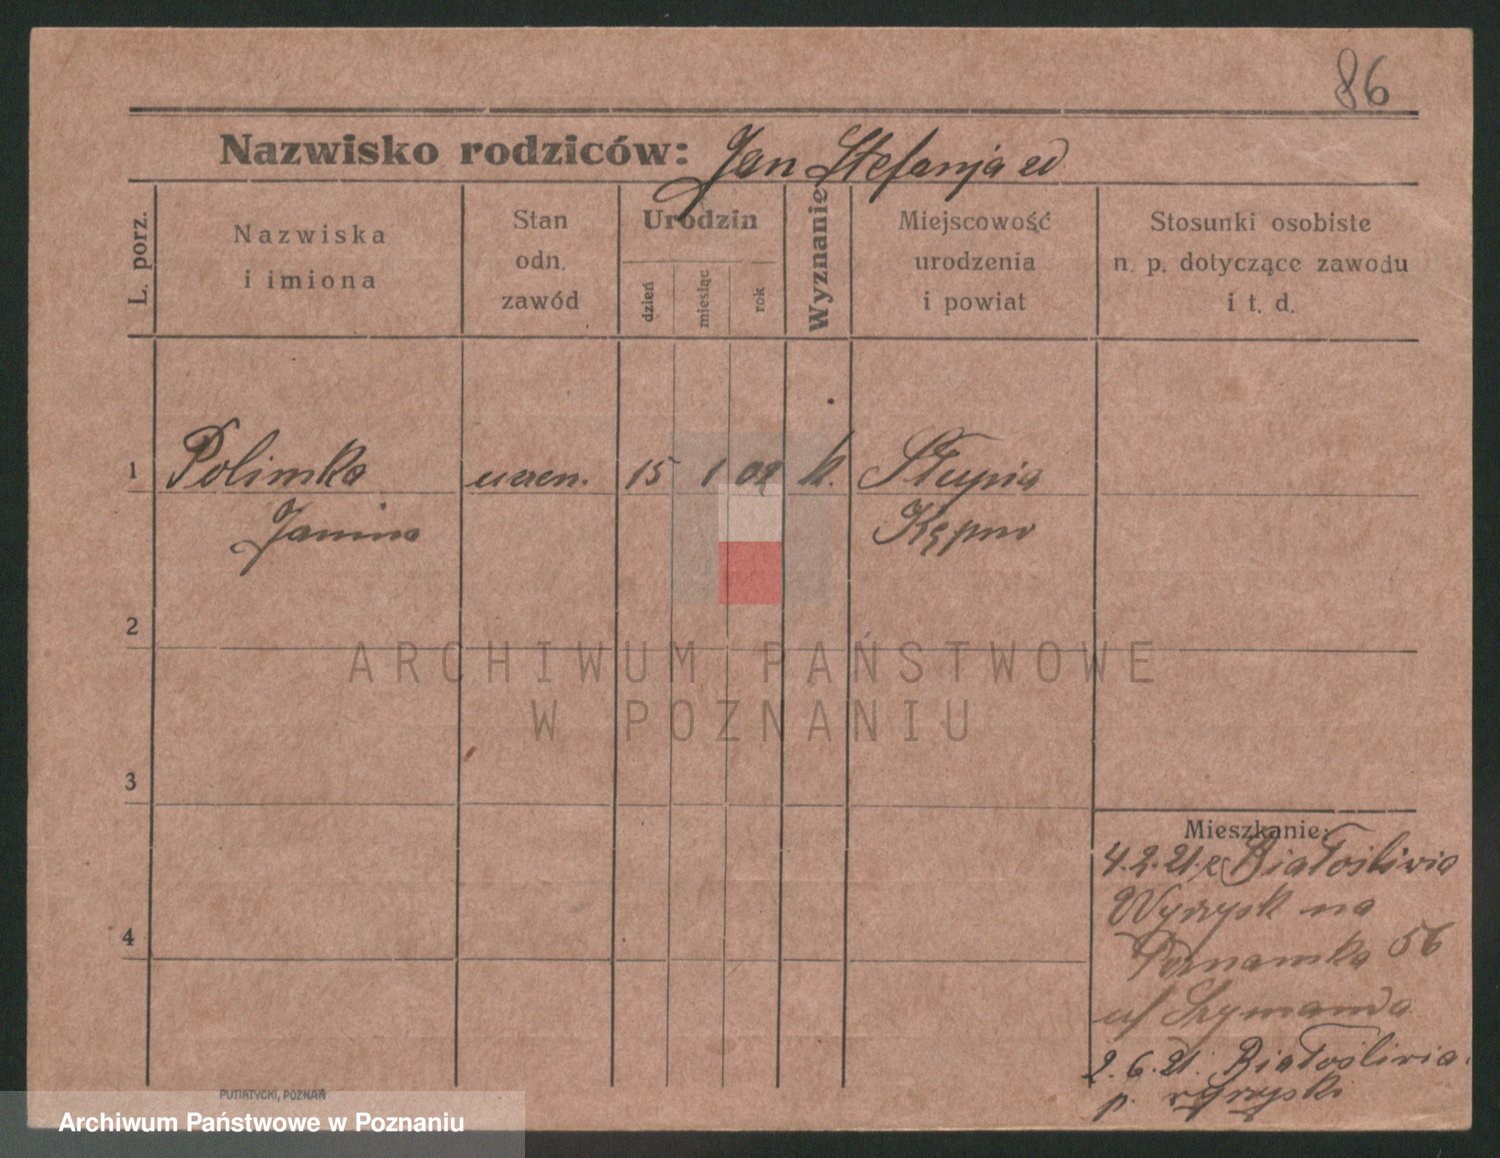 86
Nazwisko rodziców: Jan Stefanja
L. porz.
Nazwiska
i imiona
Stan
odn.
zawód
Urodzin
dzień
miesiąc
rok
Wyznanie
Miejscowość
urodzenia
i powiat
Stosunki osobiste
n. p. dotyczące zawodu
i t. d.
1 Polimka uczen. 15 1 02 k. Słupia
Janina Kępno
2
3
4
Mieszkanie:
4.2.21. z Białośliwia
Wyrzysk na
Poznańska 56
u/ Szymanda
2.6.21. Białośliwia
p. wyrzyski
PUTIATYCKI, POZNAŃ
ARCHIWUM PAŃSTWOWE
W POZNANIU
Archiwum Państwowe w Poznaniu